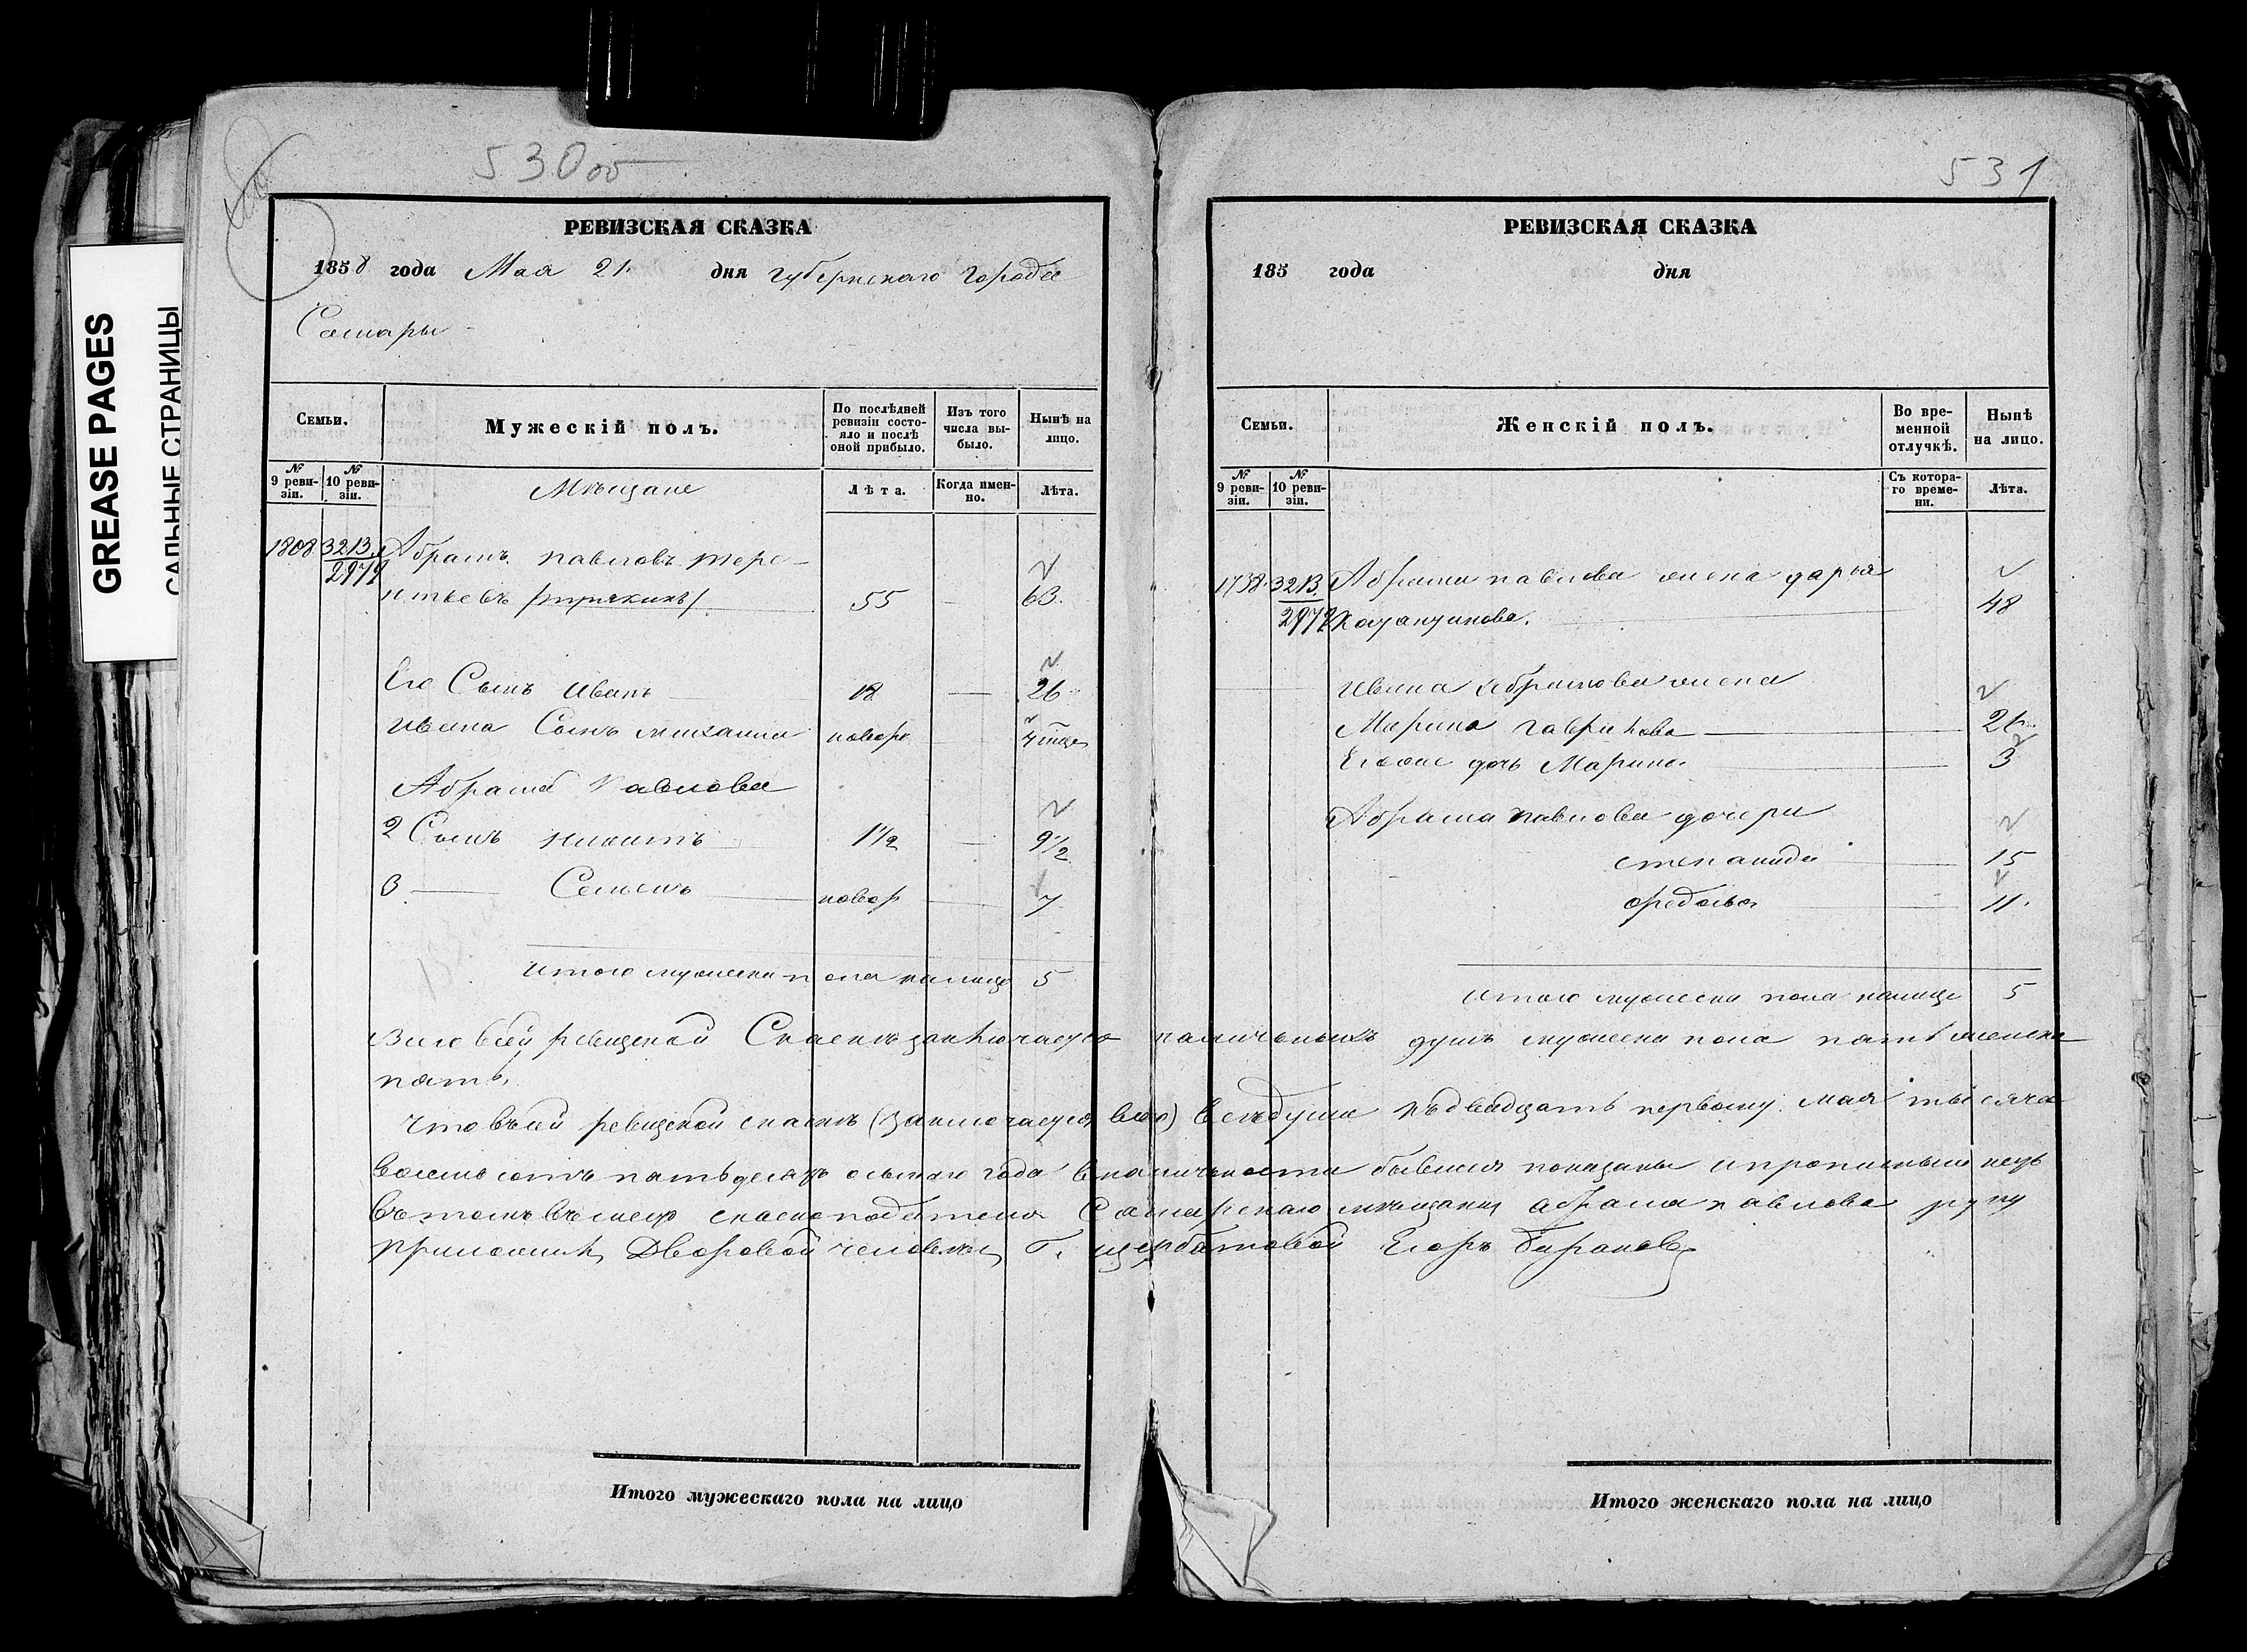 GREASE PAGES
САЛЬНЫЕ СТРАНИЦЫ
530об
РЕВИЗСКАЯ СКАЗКА
1858 года Мая 21 дня губернскаго города
Самары
Семьи.
Мужескій полъ.
По послѣдней ревизіи состояло и послѣ оной прибыло.
Изъ того числа выбыло.
Нынѣ на лицо.
№ 9 ревизіи.
№ 10 ревизіи.
Мѣщане
Лѣта.
Когда именно.
Лѣта.
1808 3213 Абрамъ павловъ тере-
2979 нтьевъ 55 — 63.
Его Сынъ иванъ 18 — 26
ивана Сынъ михаила новор
Абрама павлова
2 Сынъ никита 1 1/2 — 9 1/2
3 — Семенъ новор — 7
итого мужеска пола налицо 5
531
РЕВИЗСКАЯ СКАЗКА
185 года дня
Семьи.
Женскій полъ.
Во временной отлучкѣ.
Нынѣ на лицо.
№ 9 ревизіи.
№ 10 ревизіи.
Съ котораго времени.
Лѣта.
1738 3213 Абрама павлова жена дарья
2979 48
Ивана Абрамова жена
Марина гаврилова 26
Егоже дочь Марина 3
Абрама павлова дочери
степанида 15
федосья 11.
итого мужеска пола налицо 5
Въ сей ревизской Сказкѣ заключается наличныхъ душъ мужеска пола пять женска
пять,
Что въ сей ревизской сказкѣ (заключается все) всѣ души къ двадцать первому мая тысяча
восемь сотъ пятьдесятъ осьмаго года въ наличности бывшия показаны и прописныхъ нетъ
въ томъ вместо сказкоподателя Самарскаго мѣщанина абрама павлова руку
приложилъ Дворовой человекъ Г. щербатовой Егоръ Барановъ
Итого мужескаго пола на лицо
Итого женскаго пола на лицо